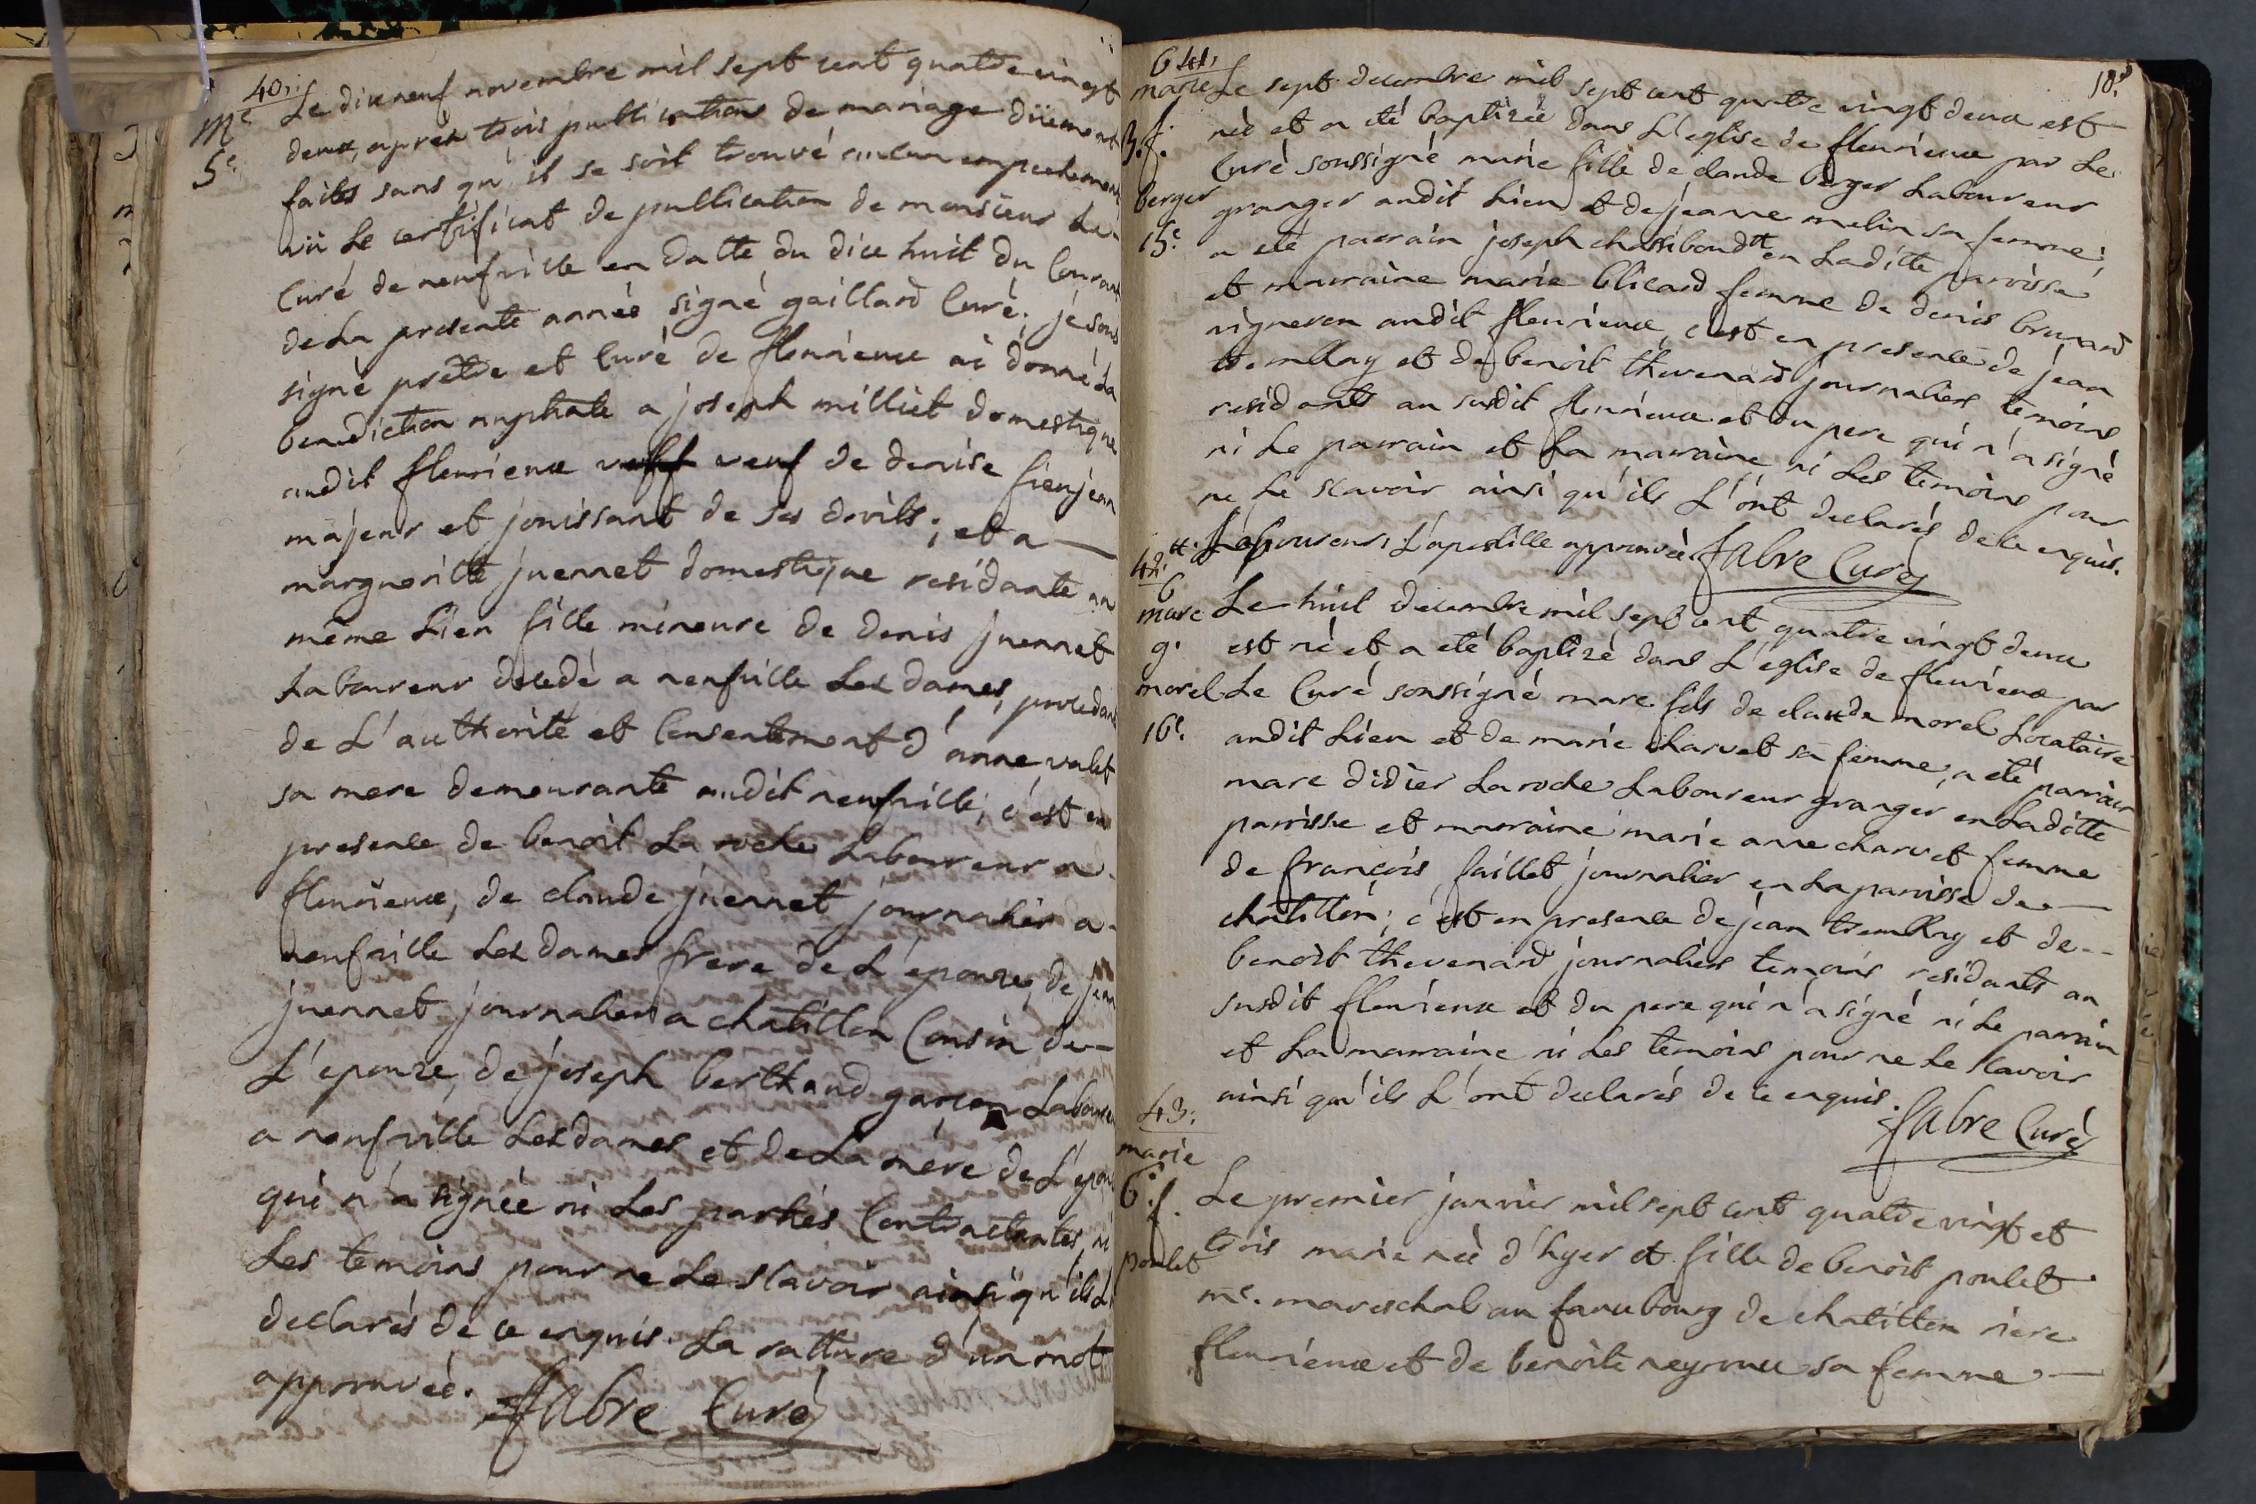 40.
Le dixneuf novembre mil sept cent quatre vingt
me
deux, apres trois publications de mariage düement
5e
faites sans qu'il se soit trouvé aucun empechement
vü Le certificat de publication de monsieur Le
Curé de neufville en datte du dix huit du Courant
de La presente année signé gaillard Curé, je sous
signé prêtre et Curé de fleurieux ai donné La
benediction nuptiale a joseph milliet domestique
audit fleurieux veuf de denise fienjean
majeur et jouissant de ses droits; et a
margueritte juennet domestique residante au
même Lieu fille mineure de denis juennet
Laboureur décédé a neufville Les dames, procedant
de L'authorité et Consentement d'anne valet
sa mere demeurante audit neufville; c'est en
presence de benoit La roche Laboureur a
fleurieux, de claude juennet journalier a
neufville Les dames frere de L'epouze, de jean
juennet journalier a chatillon Cousin de
L'epouze, de joseph berthaud garçon Laboureur
a neufville Les dames et de La mére de L'epouze
qui n'a signée ni Les parties Contractantes, ni
Les temoins pour ne Le scavoir ainsi qu'ils L'
declarés de ce enquis. La ratture d'un mot
approuvéé.
fabre Curé
18.
6 41.
marie
f.
berger
15e
Le sept decembre mil sept cent quatre vingt deux est
née et a été baptizée dans L'eglise de fleurieux par Le
Curé soussigné marie fille de claude berger Laboureur
granger audit Lieu et de jeanne melin sa femme;
a été parrain joseph chassiboud tt en Laditte parroisse
et marraine marie blicard femme de denis brunard
vigneron audit fleurieux, c'est en presence de jean
tremblay et de benoit thevenard journaliers temoins
residants au susdit fleurieux et du pere qui n'a signé
ni Le parrain et La marraine ni Les temoins pour
ne Le scavoir ainsi qu'ils L'ont declarés de ce enquis.
tt. Laboureur, L'apostille approuvée. fabre Curé
42.
6
marc
g.
morel
16e
Le huit decembre mil sept cent quatre vingt deux
est né et a été baptizé dans L'eglise de fleurieux par
Le Curé soussigné marc fils de claude morel Locataire
audit Lieu et de marie charvet sa femme, a été parrain
marc didier Laroche Laboureur granger en Laditte
parrisse et marraine marie anne charvet femme
de françois faillet journalier en La parrisse de
châtillon; c'est en presence de jean tremblay et de
benoit thevenard journaliers temoins residants au
susdit fleurieux et du pere qui n'a signé ni Le parrain
et La marraine ni Les temoins pour ne Le scavoir
ainsi qu'ils L'ont declarés de ce enquis.
fabre Curé
43.
marie
6. f.
poulet
Le premier janvier mil sept cent quatre vingt et
trois marie née d'hyer et fille de benoit poulet
me. mareschal au fauxbourg de chatillon riere
fleurieux et de benoite neyroux sa femme